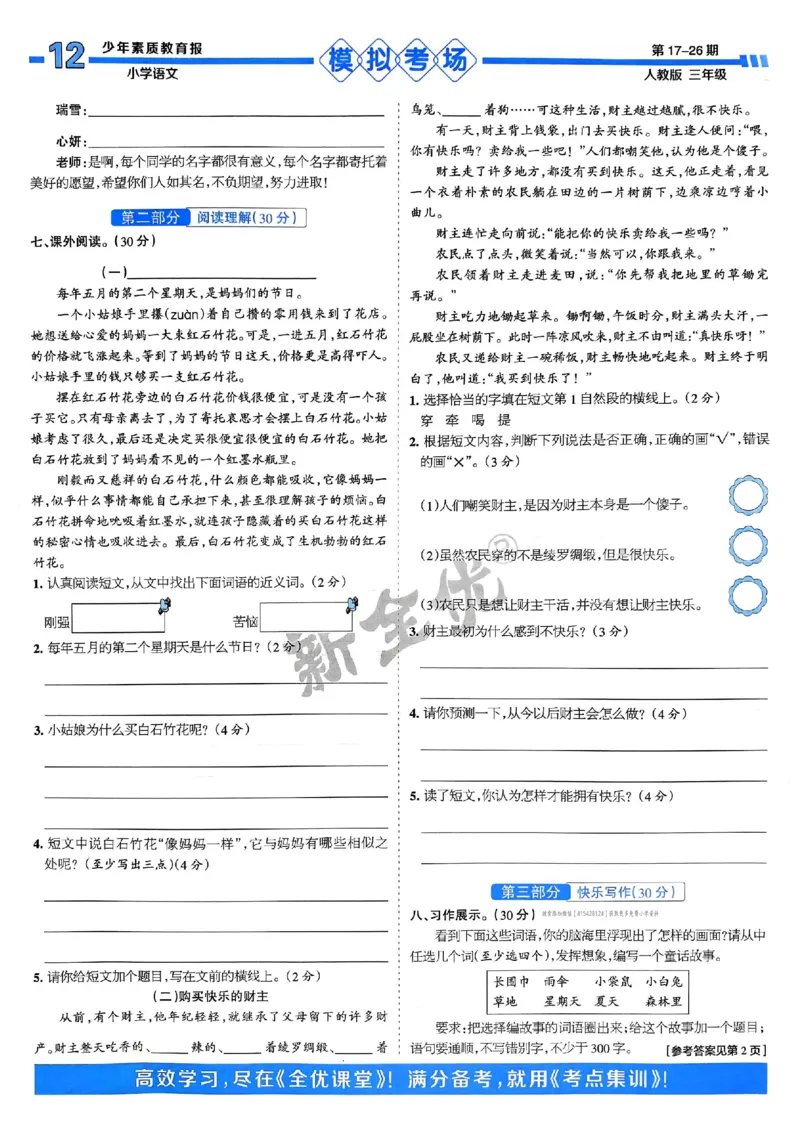 12
少年素质教育报
小学语文
模拟考场
第 17-26 期
人教版 三年级
瑞雪:
心妍:
老师:是啊,每个同学的名字都很有意义,每个名字都寄托着
美好的愿望,希望你们人如其名,不负期望,努力进取!
第二部分 阅读理解(30 分)
七、课外阅读。(30 分)
(一)
每年五月的第二个星期天,是妈妈们的节日。
一个小姑娘手里攥(zuàn)着自己攒的零用钱来到了花店。
她想送给心爱的妈妈一大束红石竹花。可是,一进五月,红石竹花
的价格就飞涨起来。等到了妈妈的节日这天,价格更是高得吓人。
小姑娘手里的钱只够买一支红石竹花。
摆在红石竹花旁边的白石竹花价钱很便宜,可是没有一个孩
子买它。只有母亲离去了,为了寄托哀思才会摆上白石竹花。小姑
娘考虑了很久,最后还是决定买很便宜很便宜的白石竹花。她把
白石竹花放到了妈妈看不见的一个红墨水瓶里。
刚毅而又慈祥的白石竹花,什么颜色都能吸收,它像妈妈一
样,似乎什么事情都能自己承担下来,甚至很理解孩子的烦恼。白
石竹花拼命地吮吸着红墨水,就连孩子隐藏着的买白石竹花这样
的秘密心情也吸收进去。最后,白石竹花变成了生机勃勃的红石
竹花。
1. 认真阅读短文,从文中找出下面词语的近义词。(2 分)
刚强 苦恼
2. 每年五月的第二个星期天是什么节日?(2 分)
3. 小姑娘为什么买白石竹花呢?(4 分)
4. 短文中说白石竹花“像妈妈一样”,它与妈妈有哪些相似之
处呢?(至少写出三点)(4 分)
5. 请你给短文加个题目,写在文前的横线上。(2 分)
(二)购买快乐的财主
从前,有个财主,他年纪轻轻,就继承了父母留下的许多财
产。财主整天吃香的、____辣的、____着绫罗绸缎、____着
鸟笼、____着狗……可这种生活,财主越过越腻,很不快乐。
有一天,财主背上钱袋,出门去买快乐。财主逢人便问:“喂,
你有快乐吗?卖给我一些吧!”人们都嘲笑他,认为他是个傻子。
财主走了许多地方,都没有买到快乐。这天,他正走着,看见
一个衣着朴素的农民躺在田边的一片树荫下,边乘凉边哼着小
曲儿。
财主连忙走向前说:“能把你的快乐卖给我一些吗?”
农民点了点头,微笑着说:“当然可以,你跟我来。”
农民领着财主走进麦田,说:“你先帮我把地里的草锄完
再说。”
财主吃力地锄起草来。锄啊锄,午饭时分,财主满头大汗,一
屁股坐在树荫下。此时一阵凉风吹来,财主不由叫道:“真快乐呀!”
农民又递给财主一碗稀饭,财主畅快地吃起来。财主终于明
白了,他叫道:“我买到快乐了!”
1. 选择恰当的字填在短文第 1 自然段的横线上。(2 分)
穿 牵 喝 提
2. 根据短文内容,判断下列说法是否正确,正确的画“√”,错误
的画“×”。(3 分)
(1)人们嘲笑财主,是因为财主本身是一个傻子。
(2)虽然农民穿的不是绫罗绸缎,但是很快乐。
(3)农民只是想让财主干活,并没有想让财主快乐。
3. 财主最初为什么感到不快乐?(3 分)
4. 请你预测一下,从今以后财主会怎么做?(4 分)
5. 读了短文,你认为怎样才能拥有快乐?(4 分)
第三部分 快乐写作(30 分)
八、习作展示。(30 分)
看到下面这些词语,你的脑海里浮现出了怎样的画面?请从中
任选几个词(至少选四个),发挥想象,编写一个童话故事。
长围巾 雨伞 小袋鼠 小白兔
草地 星期天 夏天 森林里
要求:把选择编故事的词语圈出来;给这个故事加一个题目;
语句要通顺,不写错别字,不少于 300 字。 [参考答案见第 2 页]
高效学习,尽在《全优课堂》! 满分备考,就用《考点集训》!
新全优